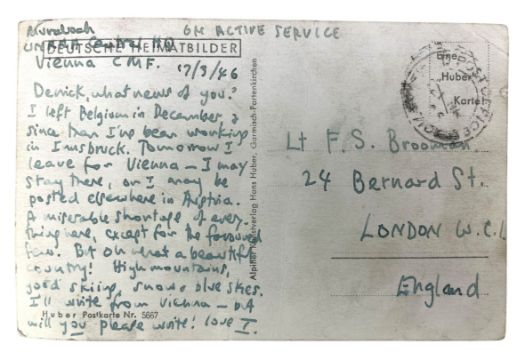 ON ACTIVE SERVICE
DEUTSCHE HEIMATBILDER
Vienna C.M.F.
17/3/46
Derrick, what news of you?
I left Belgium in December, &
since then I've been working
in Innsbruck. Tomorrow I
leave for Vienna – I may
stay there, or I may be
posted elsewhere in Austria.
A miserable shortage of every-
thing here, except for the favoured
few. But oh what a beautiful
country! High mountains,
good skiing, snow & blue skies.
I'll write from Vienna – but
will you please write! love I.
Huber Postkarte Nr. 5667
Alpiner Kunstverlag Hans Huber, Garmisch-Partenkirchen
Eine
Huber
Karte
POST OFFICE
Lt F.S. Brooman
24 Bernard St.
LONDON W.C.1
England